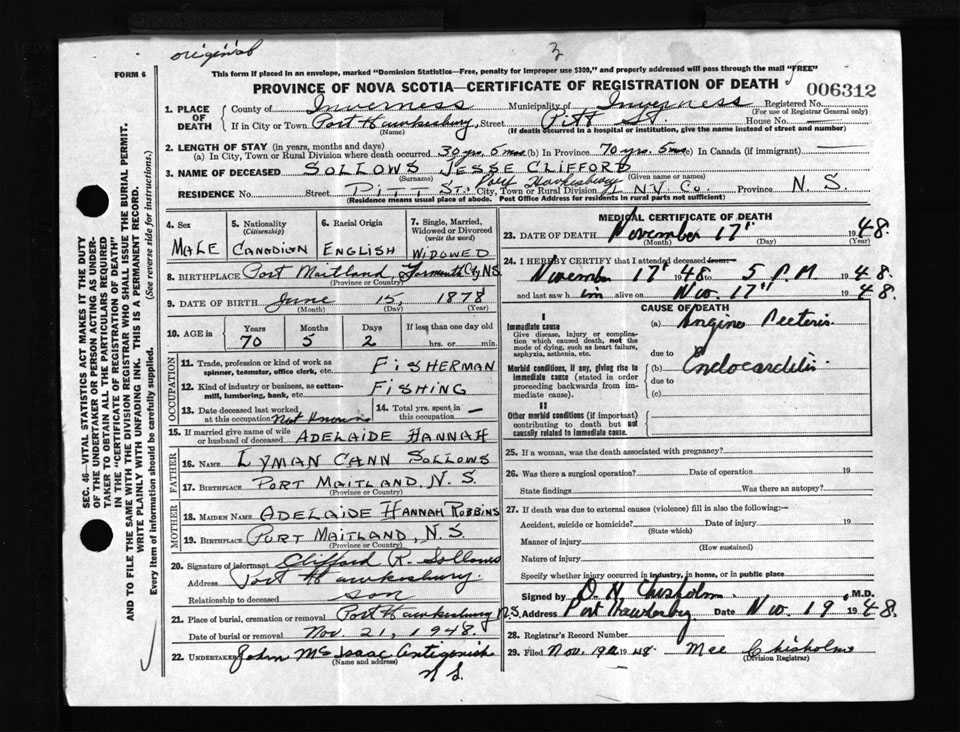 original
3
FORM 6
This form if placed in an envelope, marked "Dominion Statistics—Free, penalty for improper use $300," and properly addressed will pass through the mail "FREE"
PROVINCE OF NOVA SCOTIA—CERTIFICATE OF REGISTRATION OF DEATH
006312
1. PLACE OF DEATH
County of Inverness Municipality of Inverness Registered No.
(For use of Registrar General only)
If in City or Town Port Hawkesbury, Street Pitt St. House No. —
(Name) (If death occurred in a hospital or institution, give the name instead of street and number)
2. LENGTH OF STAY (in years, months and days)
(a) In City, Town or Rural Division where death occurred 30 yrs. 5 mos (b) In Province 70 yrs. 5 mos (c) In Canada (if immigrant) —
3. NAME OF DECEASED SOLLOWS JESSE CLIFFORD
(Surname) (Given name or names)
RESIDENCE No. Street PITT ST. City, Town or Rural Division Port Hawkesbury INV Co. Province N. S.
(Residence means usual place of abode. Post Office Address for residents in rural parts not sufficient)
4. Sex
MALE
5. Nationality (Citizenship)
CANADIAN
6. Racial Origin
ENGLISH
7. Single, Married, Widowed or Divorced (write the word)
WIDOWED
8. BIRTHPLACE Port Maitland, Yarmouth Co, N.S.
(Province or Country)
9. DATE OF BIRTH June 15, 1878
(Month) (Day) (Year)
10. AGE in
Years Months Days If less than one day old
70 5 2 hrs. or min.
OCCUPATION
11. Trade, profession or kind of work as spinner, teamster, office clerk, etc. FISHERMAN
12. Kind of industry or business, as cotton-mill, lumbering, bank, etc. FISHING
13. Date deceased last worked at this occupation Not Known
14. Total yrs. spent in this occupation —
15. If married give name of wife or husband of deceased ADELAIDE HANNAH
FATHER
16. NAME LYMAN CANN SOLLOWS
17. BIRTHPLACE PORT MAITLAND, N. S.
(Province or Country)
MOTHER
18. MAIDEN NAME ADELAIDE HANNAH ROBBINS
19. BIRTHPLACE PORT MAITLAND, N.S.
(Province or Country)
20. Signature of informant Clifford R. Sollows
Address Port Hawkesbury.
Relationship to deceased son
21. Place of burial, cremation or removal Port Hawkesbury N.S.
Date of burial or removal Nov. 21, 1948.
22. UNDERTAKER John McIsaac Antigonish
(Name and address)
N S.
MEDICAL CERTIFICATE OF DEATH
23. DATE OF DEATH November 17th 1948.
(Month) (Day) (Year)
24. I HEREBY CERTIFY that I attended deceased from
November 17th 1948 to 5 P.M 1948.
and last saw him alive on Nov. 17th 1948.
CAUSE OF DEATH
I
Immediate cause
Give disease, injury or complication which caused death, not the mode of dying, such as heart failure, asphyxia, asthenia, etc.
(a) Angina Pectoris
due to
Morbid conditions, if any, giving rise to immediate cause (stated in order proceeding backwards from immediate cause).
(b) Endocarditis
due to
(c)
II
Other morbid conditions (if important) contributing to death but not causally related to immediate cause.
25. If a woman, was the death associated with pregnancy?
26. Was there a surgical operation? Date of operation 19
State findings Was there an autopsy?
27. If death was due to external causes (violence) fill in also the following:—
Accident, suicide or homicide? Date of injury 19
(State which)
Manner of injury
(How sustained)
Nature of injury
Specify whether injury occurred in industry, in home, or in public place
Signed by D. H. Chisholm M.D.
Address Port Hawkesbury Date Nov. 19 1948.
28. Registrar's Record Number
29. Filed Nov. 19th 1948. Mae Chisholm
(Division Registrar)
SEC. 46—VITAL STATISTICS ACT MAKES IT THE DUTY
OF THE UNDERTAKER OR PERSON ACTING AS UNDER-
TAKER TO OBTAIN ALL THE PARTICULARS REQUIRED
IN THE "CERTIFICATE OF REGISTRATION OF DEATH"
AND TO FILE THE SAME WITH THE DIVISION REGISTRAR WHO SHALL ISSUE THE BURIAL PERMIT.
WRITE PLAINLY WITH UNFADING INK. THIS IS A PERMANENT RECORD.
Every item of information should be carefully supplied. (See reverse side for instructions.)